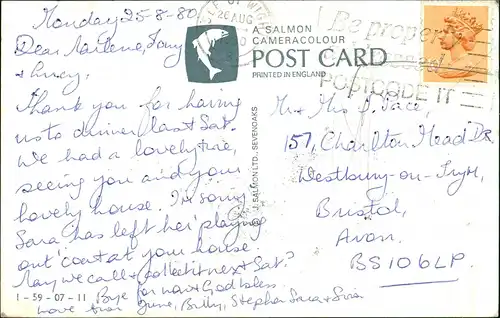 Monday 25-8-80
Dear Marlene, Tony
+ Lucy,
Thank you for having
us to dinner last Sat.
We had a lovely time,
seeing you and your
lovely house. I'm sorry
Sara has left her 'playing
out' coat at your house.
May we call + collect it next Sat?
1-59-07-11 Bye for now + God bless
love from June, Billy, Stephen Sara + Sira
26 AUG
A SALMON
CAMERACOLOUR
POST CARD
PRINTED IN ENGLAND
© J. SALMON LTD., SEVENOAKS
Be properly
POSTCODE IT
Mr + Mrs Pace,
157, Charlton Mead Dr
Westbury-on-Trym,
Bristol,
Avon.
BS10 6LP.